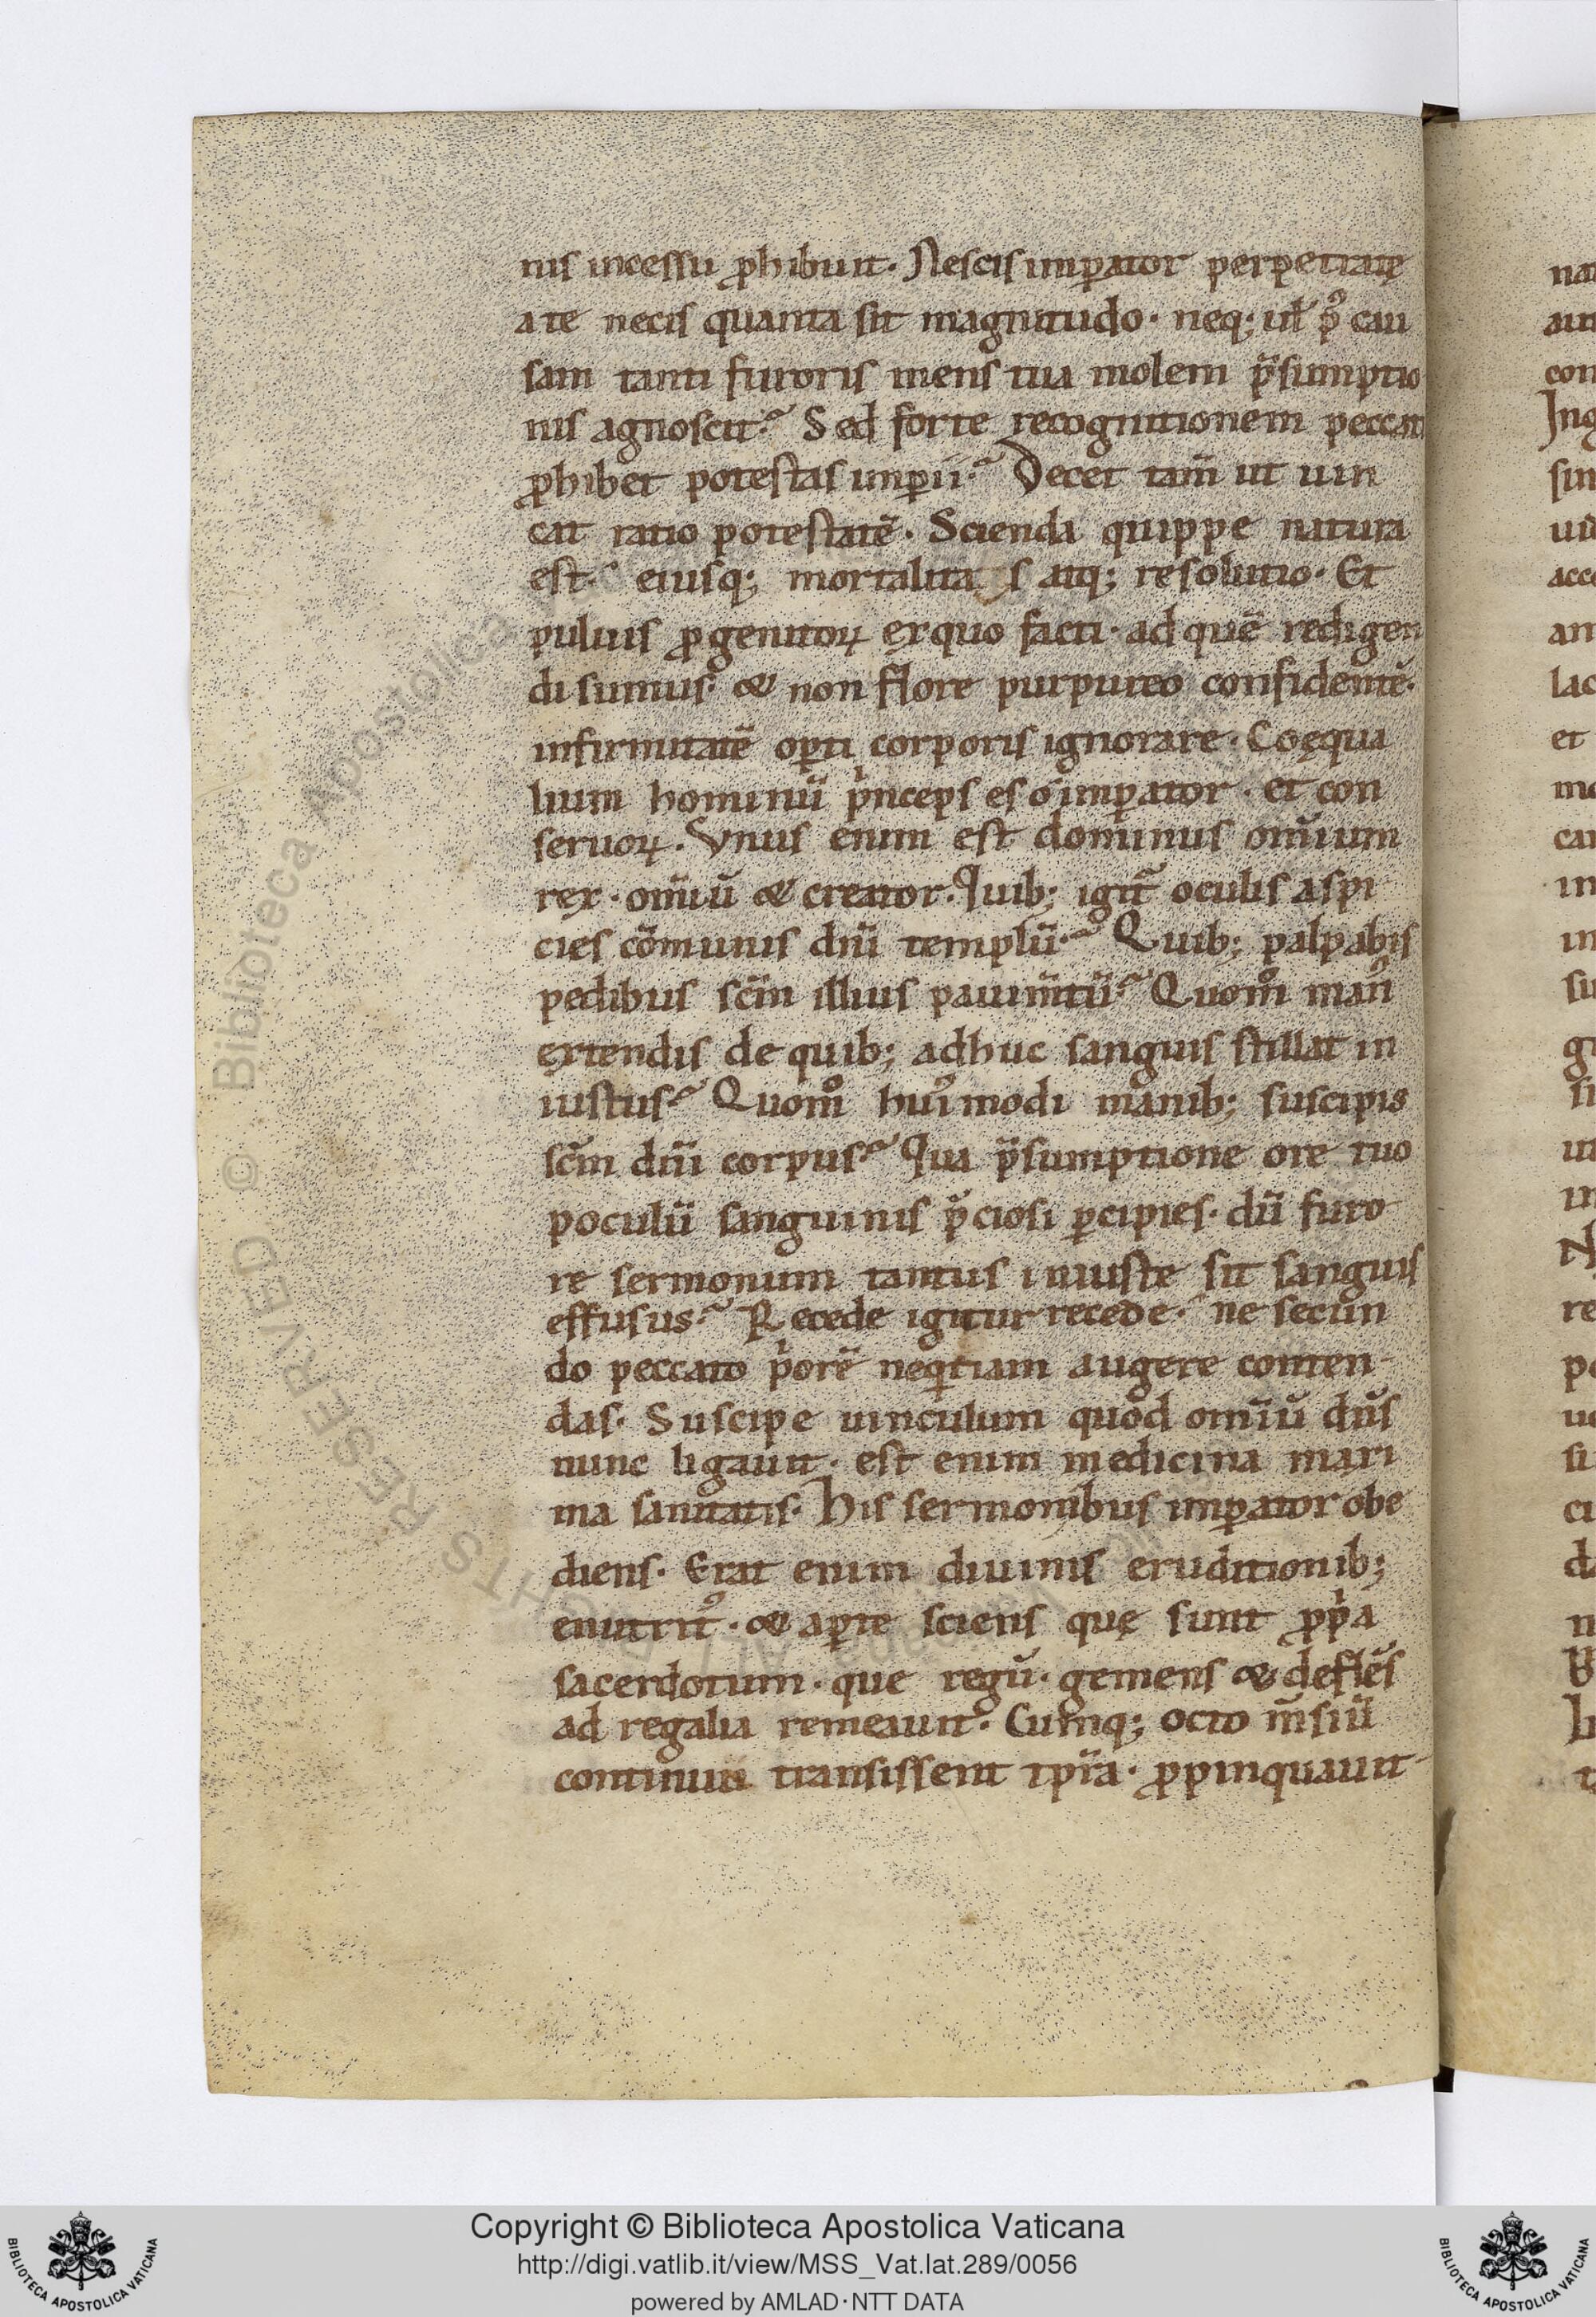 nis incessu ꝓhibuit. Nescis imꝑator perpetratę
a te necis quanta sit magnitudo. neq; ul̄ p̾ cau
sam tanti furoris mens tua molem p̄sumptio
nis agnoscit? Sed forte recognitionem peccati
ꝓhibet potestas imꝑii? Decet tam̄ ut uin
cat ratio potestatē. Scienda quippe natura
est. eiusq; mortalitatis atq; resolutio. Et
puluis ꝓgenitoꝝ ex quo facti. ad quē redigen
di sumus. & non flore purpureo confidentē.
infirmitatē oꝑti corporis ignorare. Coęqua
lium hominū pⁱnceps es o imꝑator. et con
seruoꝝ. Vnus enim est dominus om̄ium
rex. om̄iū & creator. Quib; igit̄ oculis aspi
cies cōmunis dn̄i templū? Quib; palpabis
pedibus scm̄ illius pauim̄tū? Quom̊ man᾿
extendis de quib; adhuc sanguis stillat in
iustus? Quom̊ hui᾿modi manib; suscipis
scm̄ dn̄i corpus? Qua p̄sumptione ore tuo
poculū sanguinis p̄ciosi ꝑcipies. dū furo
re sermonum tantus iniuste sit sanguis
effusus? Recede igitur recede. ne secun
do peccato pⁱorē neqⁱtiam augere conten
das. Suscipe uinculum quod om̄iū dn̄s
nunc ligauit. est enim medicina maxi
ma sanitatis. His sermonibus imꝑator obe
diens. Erat enim diuinis eruditionib;
enutrit᾿. & aꝑte sciens quę sunt ꝓpⁱa
sacerdotum. que regū. gemens & deflēs
ad regalia remeauit. Cumq; octo m̄siū
continuū transissent tp̄ra. ꝓpinquauit
Copyright © Biblioteca Apostolica Vaticana
http://digi.vatlib.it/view/MSS_Vat.lat.289/0056
powered by AMLAD·NTT DATA